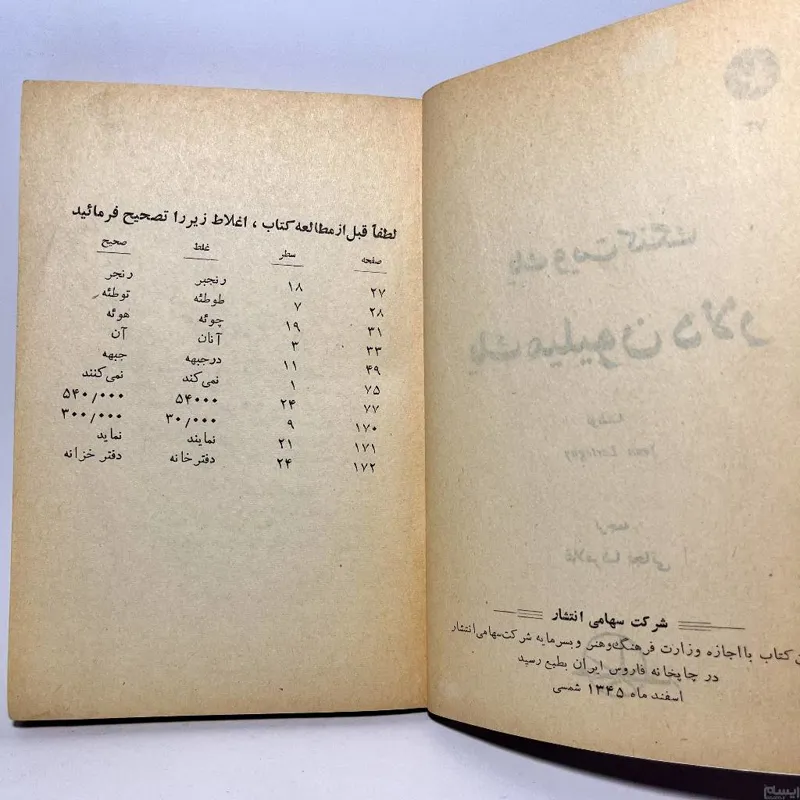 شرکت سهامی انتشار
کتاب با اجازه وزارت فرهنگ و هنر و بسرمایه شرکت سهامی انتشار
در چاپخانه فاروس ایران بطبع رسید
اسفند ماه ۱۳۴۵ شمسی
لطفاً قبل از مطالعه کتاب ، اغلاط زیر را تصحیح فرمائید
صفحه سطر غلط صحیح
۲۷ ۱۸ رنجبر رنجر
۲۸ ۷ طوطئه توطئه
۳۱ ۱۹ چوئه هوئه
۳۳ ۳ آنان آن
۴۹ ۱۱ درجبهه جبهه
۷۵ ۱ نمی‌کند نمی‌کنند
۷۷ ۲۴ ۵۴۰۰۰ ۵۴۰/۰۰۰
۱۷۰ ۹ ۳۰/۰۰۰ ۳۰۰/۰۰۰
۱۷۱ ۲۱ نمایند نماید
۱۷۲ ۲۴ دفترخانه دفتر خزانه
ایسام